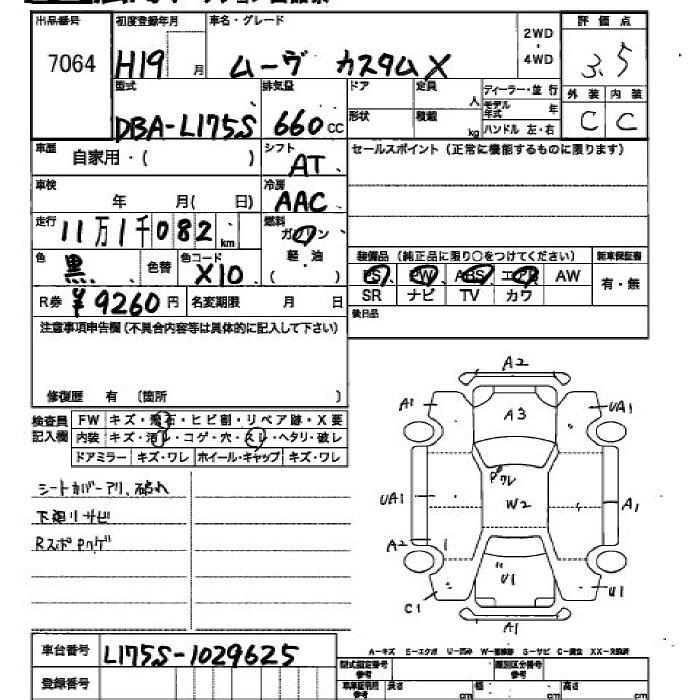 出品番号 初度登録年月 車名・グレード 2WD・4WD 評価点
7064 H19 月 ムーヴ カスタムX 3.5
型式 排気量 ドア 定員 人 ディーラー・並行 外装 内装
DBA-L175S 660cc 形状 積載 kg モデル年式 年 ハンドル 左・右 C C
車歴 自家用・( ) シフト AT セールスポイント(正常に機能するものに限ります)
車検 年 月( 日) 冷房 AAC
走行 11万1千082km 燃料 ガソリン
色 黒 色替 色コード X10 軽・油 ( ) 装備品(純正品に限り○をつけてください) 新車保証書
PS PW ABS エアB AW 有・無
R券 ¥9260円 名変期限 月 日 SR ナビ TV カワ
注意事項申告欄(不具合内容等は具体的に記入して下さい) 後日品
修復歴 有 〔箇所 〕
検査員記入欄 FW キズ・飛石・ヒビ割・リペア跡・X要
内装 キズ・汚レ・コゲ・穴・スレ・ヘタリ・破レ
ドアミラー キズ・ワレ ホイール・キャップ キズ・ワレ
シートカバーアリ、破れ
下廻りサビ
A2
A1 A3 UA1
Pワレ
UA1 W2 A1
A2
U1
C1 U1
A1
車台番号 L175S-1029625
A-キズ E-エクボ U-凹み W-補修跡 S-サビ C-腐食 XX-交換済
登録番号 型式指定番号 参考 類別区分番号 参考
車庫証明用 参考 長さ cm 幅 cm 高さ cm